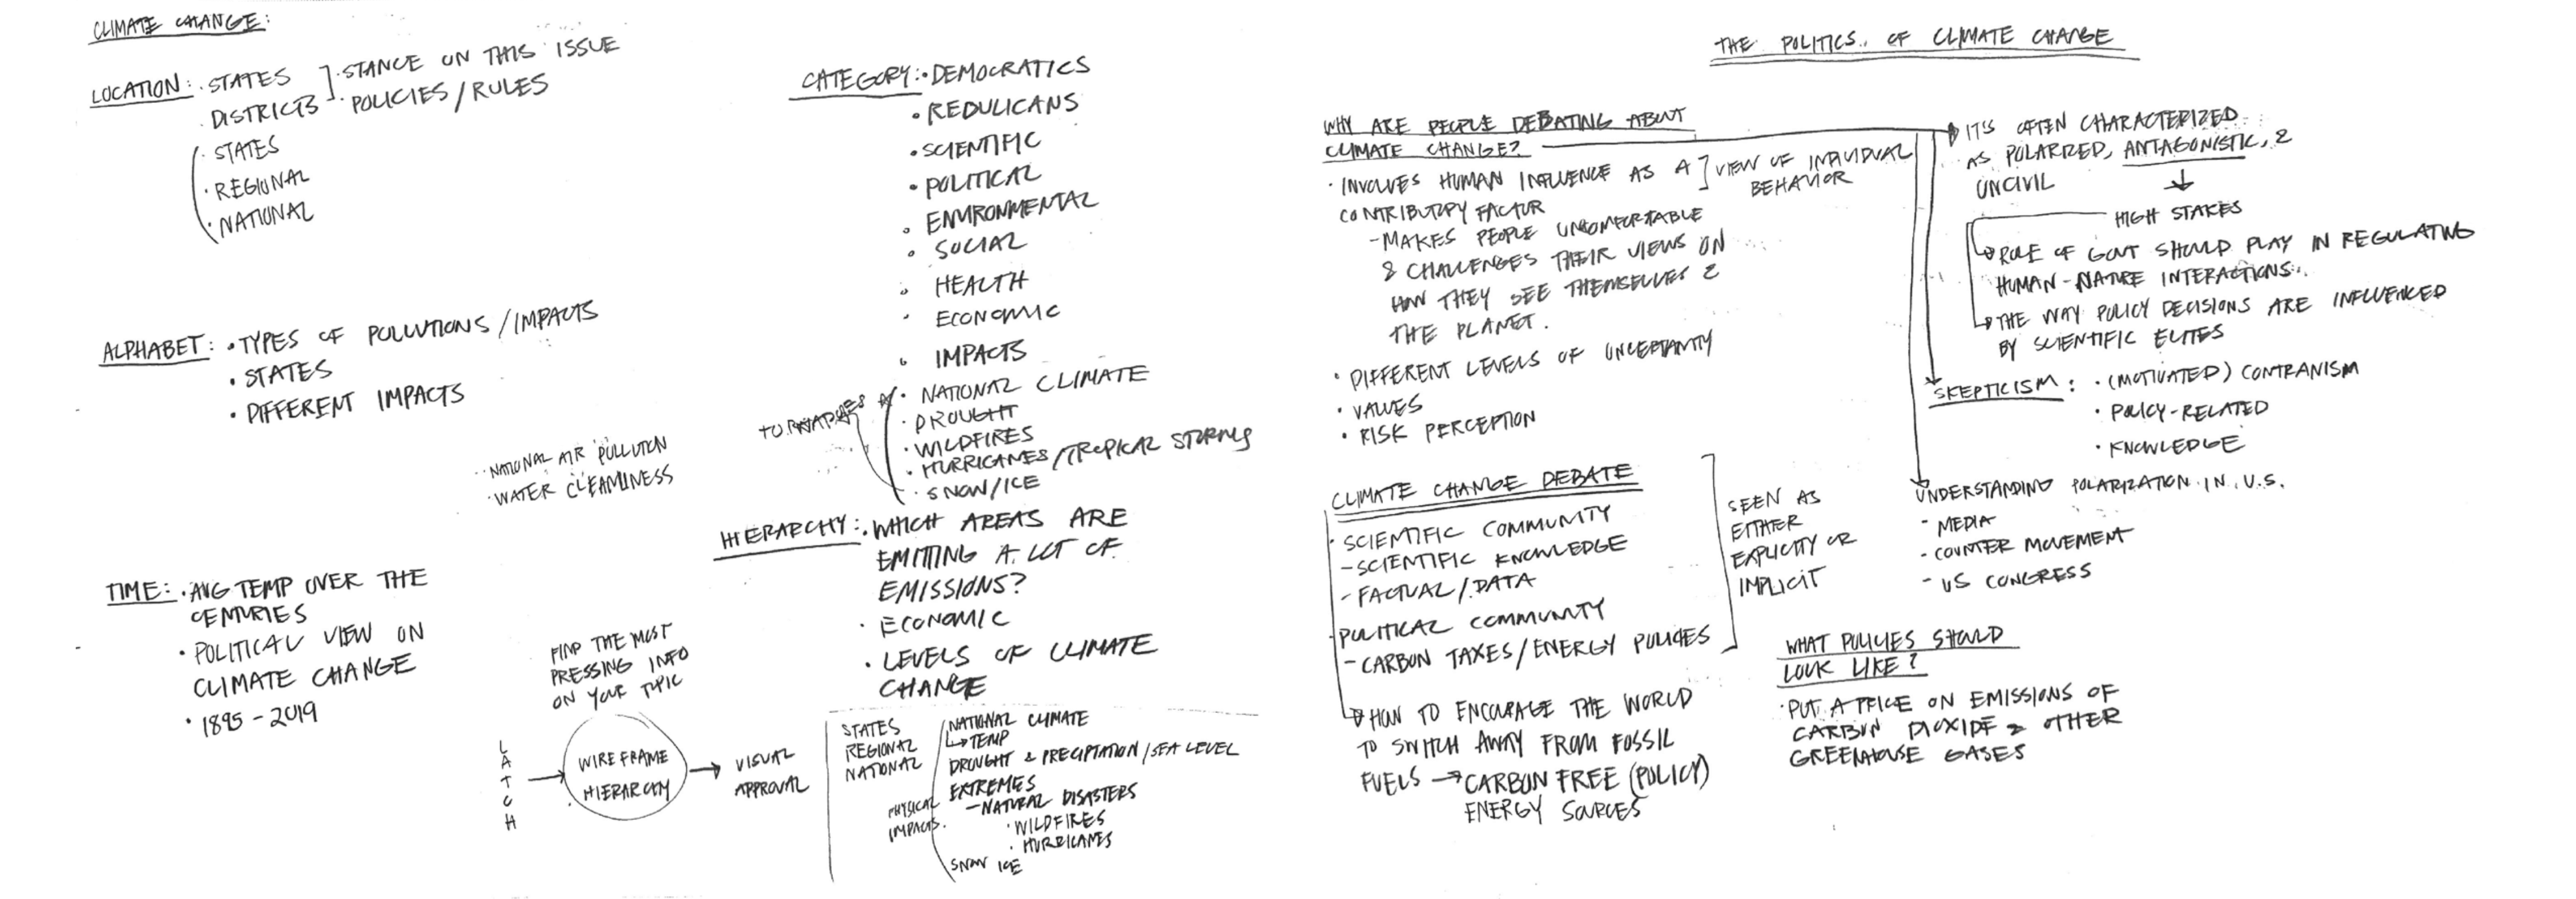 CLIMATE CHANGE:
LOCATION: · STATES ] · STANCE ON THIS ISSUE
· DISTRICTS · POLICIES/RULES
· STATES
· REGIONAL
· NATIONAL
ALPHABET: · TYPES OF POLLUTIONS/IMPACTS
· STATES
· DIFFERENT IMPACTS
· NATIONAL AIR POLLUTION
· WATER CLEANINESS
TIME: · AVG TEMP OVER THE
CENTURIES
· POLITICAL VIEW ON
CLIMATE CHANGE
· 1895 - 2019
FIND THE MOST
PRESSING INFO
ON YOUR TOPIC
LATCH → WIREFRAME → VISUAL
HIERARCHY APPROVAL
CATEGORY: · DEMOCRATICS
· REDULICANS
· SCIENTIFIC
· POLITICAL
· ENVIRONMENTAL
· SOCIAL
· HEALTH
· ECONOMIC
· IMPACTS
· NATIONAL CLIMATE
· DROUGHT
· WILDFIRES
· HURRICANES/TROPICAL STORMS
· SNOW/ICE
HIERARCHY: · WHICH AREAS ARE
EMITTING A LOT OF
EMISSIONS?
· ECONOMIC
· LEVELS OF CLIMATE
CHANGE
STATES
REGIONAL
NATIONAL
PHYSICAL
IMPACTS.
NATIONAL CLIMATE
↳ TEMP
DROUGHT & PRECIPTATION/SEA LEVEL
EXTREMES
- NATURAL DISASTERS
· WILDFIRES
· HURRICANES
SNOW ICE
THE POLITICS OF CLIMATE CHANGE
WHY ARE PEOPLE DEBATING ABOUT
CLIMATE CHANGE?
· INVOLVES HUMAN INFLUENCE AS A ] VIEW OF INDIVIDUAL
CONTRIBUTORY FACTOR BEHAVIOR
- MAKES PEOPLE UNCOMFORTABLE
& CHALLENGES THEIR VIEWS ON
HOW THEY SEE THEMSELVES &
THE PLANET.
· DIFFERENT LEVELS OF UNCERTAINTY
· VALUES
· RISK PERCEPTION
CLIMATE CHANGE DEBATE
· SCIENTIFIC COMMUNITY
- SCIENTIFIC KNOWLEDGE
- FACTUAL/DATA
· POLITICAL COMMUNITY
- CARBON TAXES/ENERGY POLICIES
SEEN AS
EITHER
EXPLICITY OR
IMPLICIT
↳ HOW TO ENCOURAGE THE WORLD
TO SWITCH AWAY FROM FOSSIL
FUELS → CARBON FREE (POLICY)
ENERGY SOURCES
IT'S OFTEN CHARACTERIZED
AS POLARIZED, ANTAGONISTIC, &
UNCIVIL ↓
HIGH STAKES
↳ ROLE OF GOVT SHOULD PLAY IN REGULATING
HUMAN-NATURE INTERACTIONS.
↳ THE WAY POLICY DECISIONS ARE INFLUENCED
BY SCIENTIFIC ELITES
SKEPTICISM: · (MOTIVATED) CONTRANISM
· POLICY-RELATED
· KNOWLEDGE
UNDERSTANDING POLARIZATION IN U.S.
- MEDIA
- COUNTER MOVEMENT
- US CONGRESS
WHAT POLICIES SHOULD
LOOK LIKE?
· PUT A PRICE ON EMISSIONS OF
CARBON DIOXIDE & OTHER
GREENHOUSE GASES